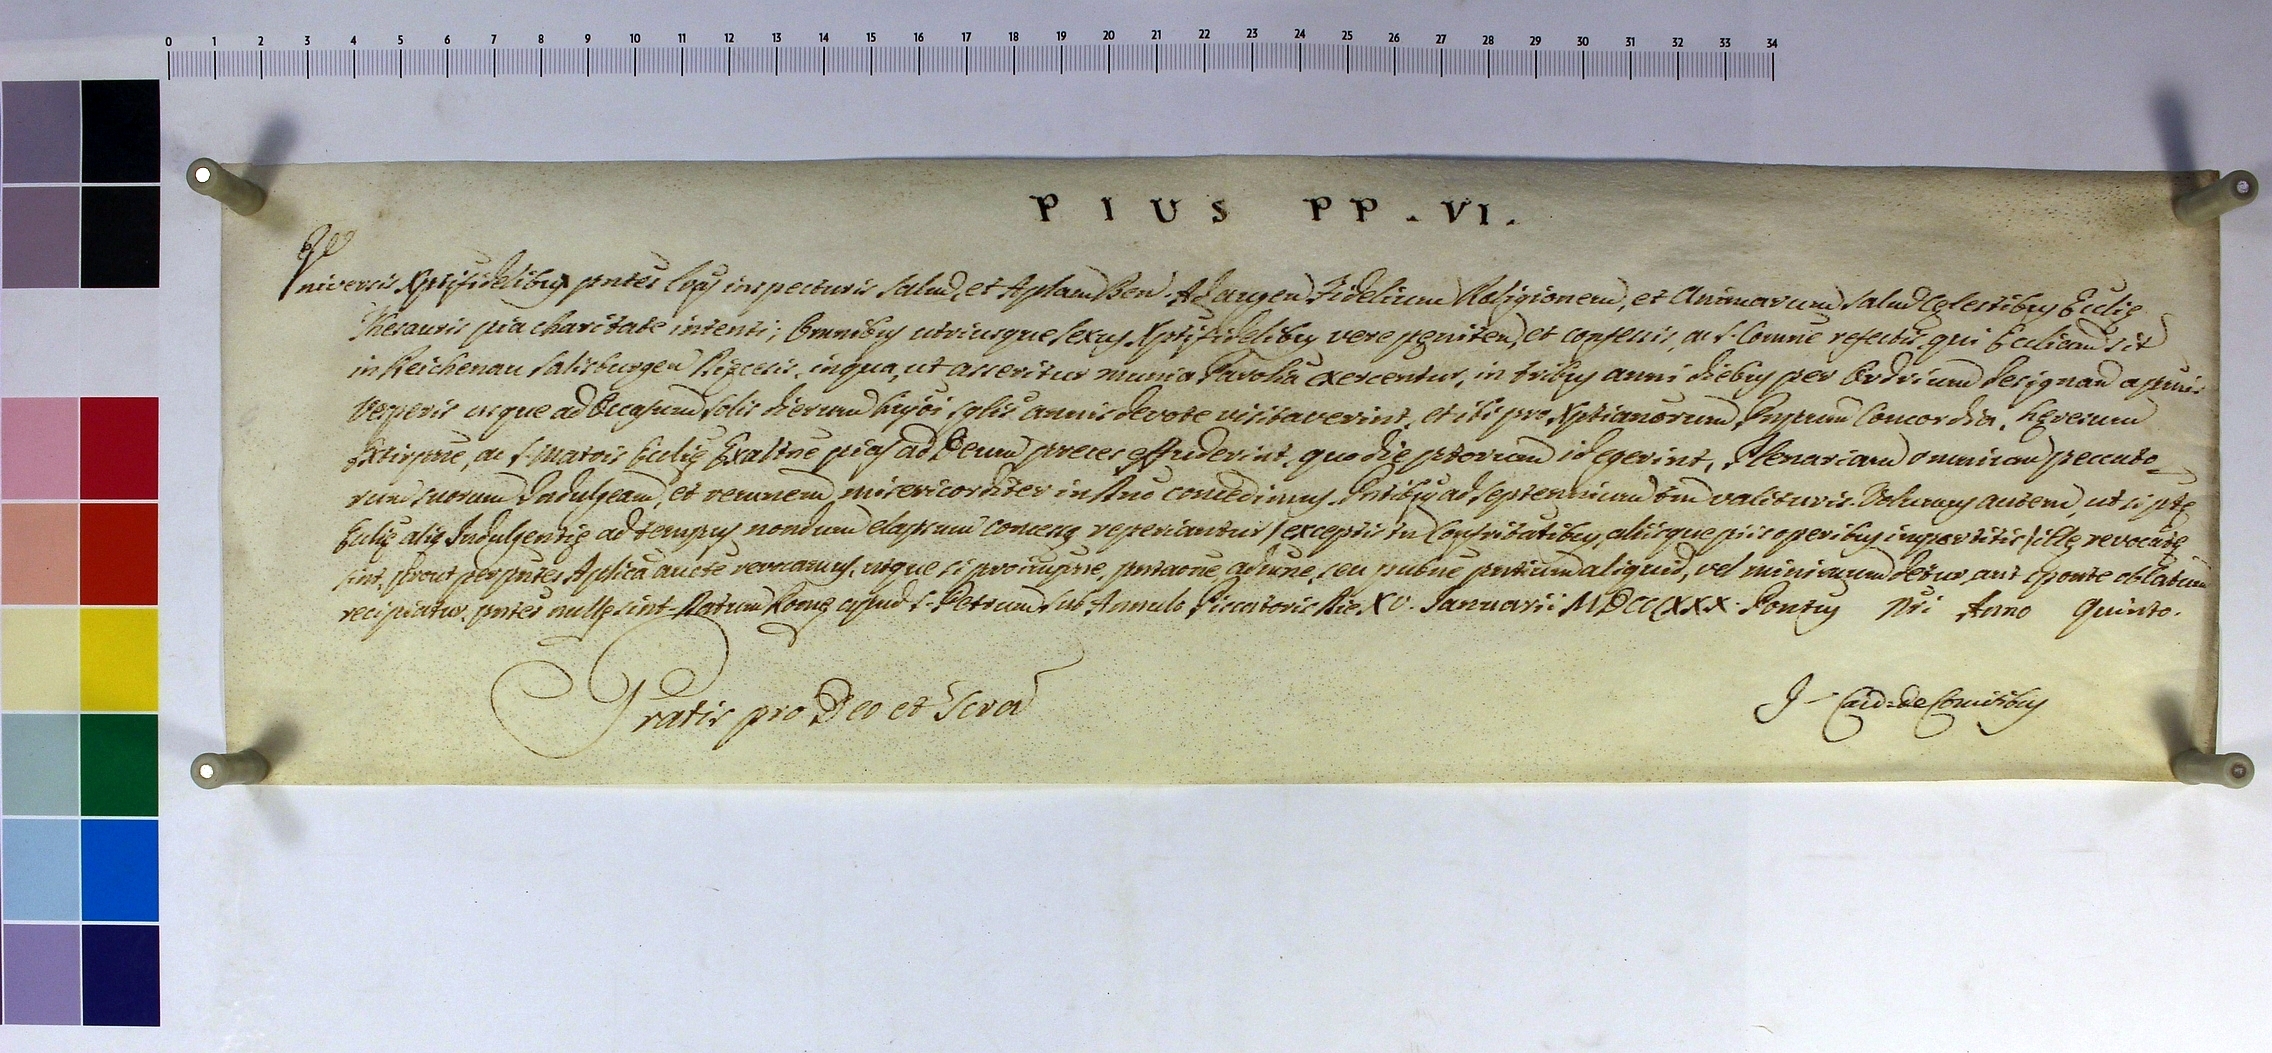 0 1 2 3 4 5 6 7 8 9 10 11 12 13 14 15 16 17 18 19 20 21 22 23 24 25 26 27 28 29 30 31 32 33 34
PIUS PP. VI.
Universis Xptifidelibus pntes inspecturis Salud, et Aplam Ben. Ad augen Fidelium Religionem, et Animarum Salud Cęlestibus Ecclię
Thesauris pia charitate intenti; Omnibus utriusque Sexus Xptifidelibus vere pęniten, et confessis, ac S. Comne refectis, qui Eccliam sit
in Reichenau Salisburgen Dięcesis, in qua, ut asseritur munia Parolia exercentur, in tribus anni diebus per Ordrium designan a pmis
Vesperis usque ad Occasum Solis dierum hujõi sglis annis devote visitaverint, et ibi pro Xptianorum Pnpum Concordia, Hęresum
Extirpne, ac S. Matris Ecclię Exaltne pias ad Deum preces effuderint, quo die ptorum id egerint, Plenariam omnium peccato-
rum suorum Indulgeam, et remnem misericorditer in Dno concedimus. Pntibus ad Septennium tm valituris. Volumus autem, ut si pte
Ecclię alię Indulgentię ad tempus nondum elapsum concessę reperiantur (exceptis tn Confritatibus, aliisque piis operibus impartitis) illę revocatę
sint, prout per pntes Aplica aucte revocamus, utque si pro impne, pntaone, admne, seu pubne pntium aliquid, vel minimum detur, aut sponte oblatum
recipiatur, pntes nullę sint. Datum Romę apud S. Petrum sub Annulo Piscatoris Die XV. Januarii MDCCLXXX. Pontus Nri Anno Quinto.
Gratis pro Deo et Scra
J. Card. de Comitibus